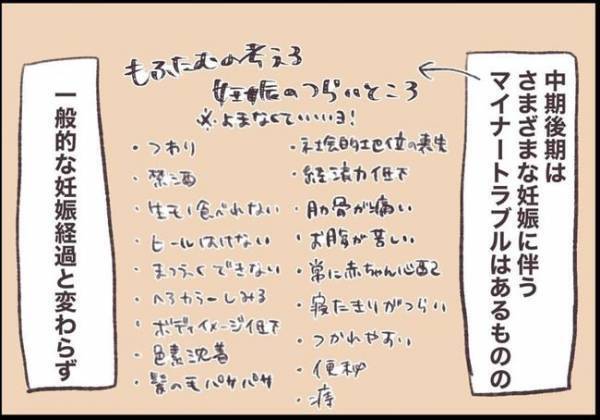 中期後期は
さまざまな妊娠に伴う
マイナートラブルはあるものの
もふたむの考える
妊娠のつらいところ
※よまなくていいヨ!
・つわり
・禁酒
・生モノ食べれない
・ヒールはけない
・まつエクできない
・ヘアカラーしみる
・ボディイメージ低下
・色素沈着
・髪の毛パサパサ
・社会的地位の喪失
・経済力低下
・肋骨が痛い
・お腹が苦しい
・常に赤ちゃん心配
・寝たきりがつらい
・つかれやすい
・便秘
・痔
一般的な妊娠経過と変わらず